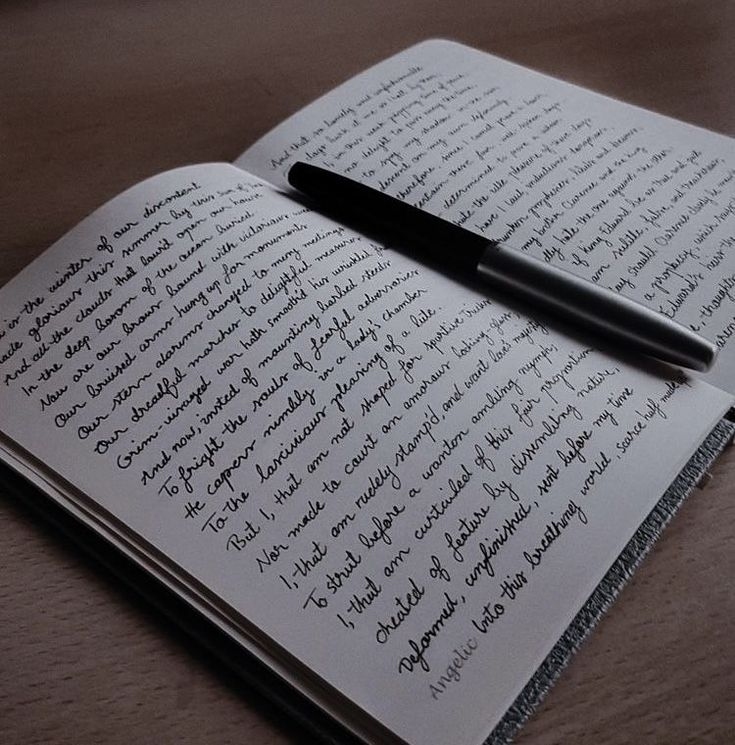 is the winter of our discontent
made glorious this summer by this sun of
And all the clouds that lour'd open our house
In the deep bosom of the ocean buried
Now are our brows bound with victorious
Our bruised arms hung up for monuments
Our stern alarums changed to merry meetings
Our dreadful marches to delightful measures
Grim-visaged war hath smooth'd his wrinkled
And now, insted of mounting barbed steeds
To fright the souls of fearful adversaries
He capers nimbly in a lady's chamber
To the lascivious pleasing of a lute.
But I, that am not shaped for sportive tricks
Nor made to court an amorous looking-glass
I, that am rudely stamp'd, and want love's majesty
To strut before a wanton ambling nymph;
I, that am curtailed of this fair proportion
cheated of feature by dissembling nature,
Deformed, unfinished, sent before my time
Into this breathing world, scarce half made up
Angelic
And that so lamely and unfashionable
dogs bark at me as I halt by them
I, in this weak piping time of peace
no delight to pass away the time,
to spy my shadow in the sun
descant on my own deformity
therefore, since I cannot prove a lover
entertain these fair well-spoken days
determined to prove a villain
hate the idle pleasures of these days
have I laid, inductions dangerous,
drunken prophecies, libels and dreams,
my brother Clarence and the king
hate the one against the other
if king Edward be as true and just
am subtle, false, and treacherous,
day should Clarence closly be
a prophecy, which
Edward's heirs the
thoughts